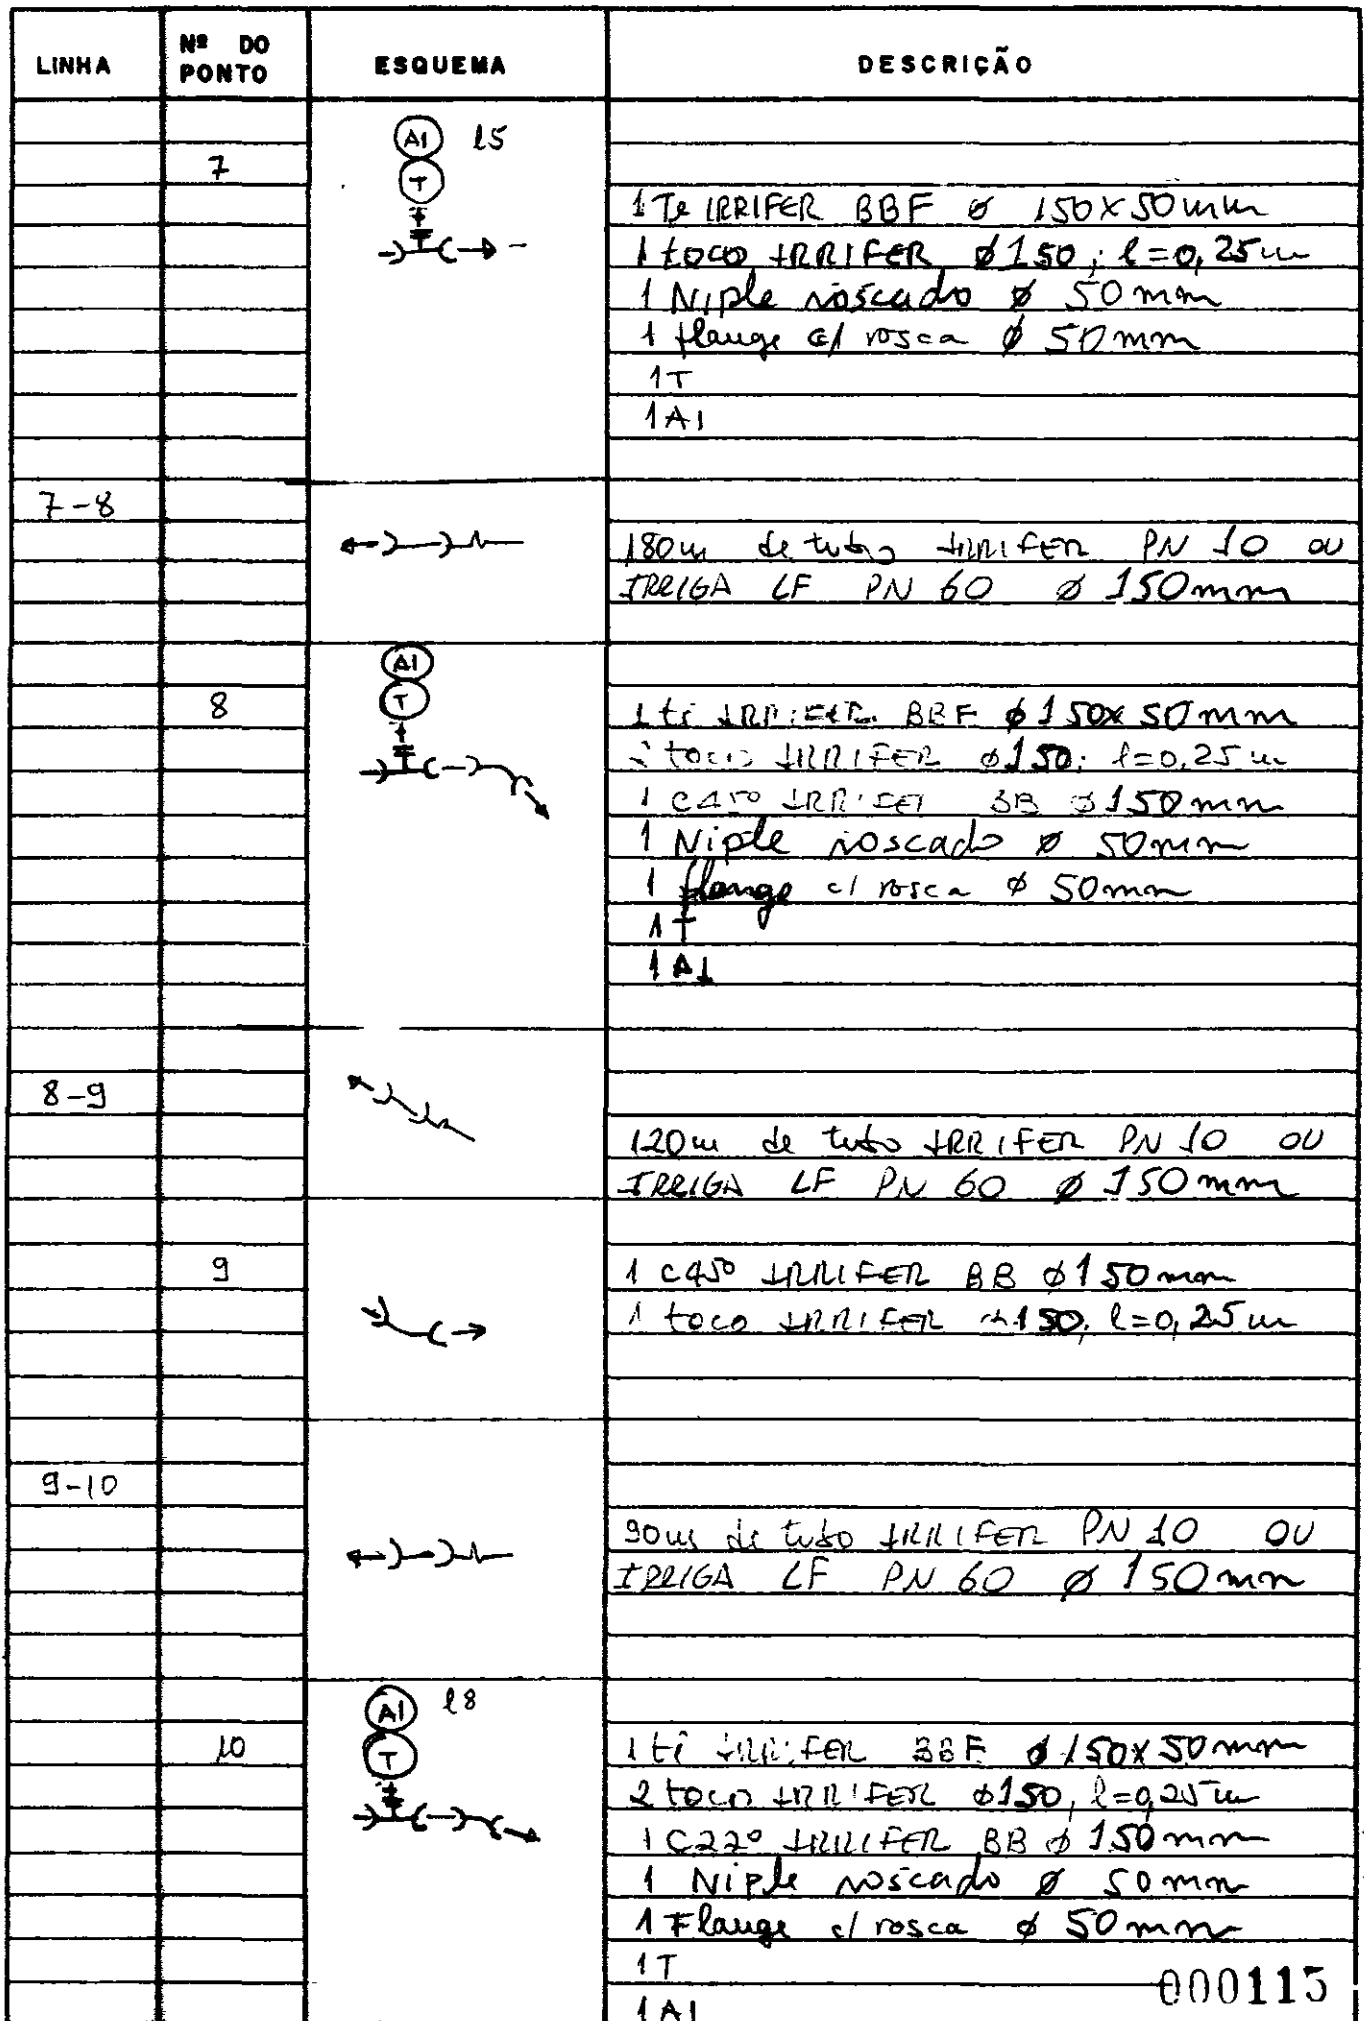 LINHA Nº DO PONTO ESQUEMA DESCRIÇÃO
AI l5
7 T
1 Te IRRIFER BBF Ø 150X50mm
1 toco IRRIFER Ø150; l=0,25m
1 Niple roscado Ø 50mm
1 flange c/ rosca Ø 50mm
1T
1AI
7-8
180m de tubo IRRIFER PN 10 OU
IRRIGA LF PN 60 Ø 150mm
AI
8 T
1 tê IRRIFER BBF Ø150x50mm
toco IRRIFER Ø150; l=0,25m
1 C45º IRRIFER BB Ø150mm
1 Niple roscado Ø 50mm
1 flange c/ rosca Ø 50mm
1T
1AI
8-9
120m de tubo IRRIFER PN 10 OU
IRRIGA LF PN 60 Ø 150mm
9
1 C45º IRRIFER BB Ø150mm
1 toco IRRIFER Ø150, l=0,25m
9-10
90m de tubo IRRIFER PN 10 OU
IRRIGA LF PN 60 Ø 150mm
AI l8
10 T
1 tê IRRIFER BBF Ø150x50mm
2 toco IRRIFER Ø150, l=0,25m
1 C22º IRRIFER BB Ø150mm
1 Niple roscado Ø 50mm
1 Flange c/ rosca Ø 50mm
1T
000115
1AI